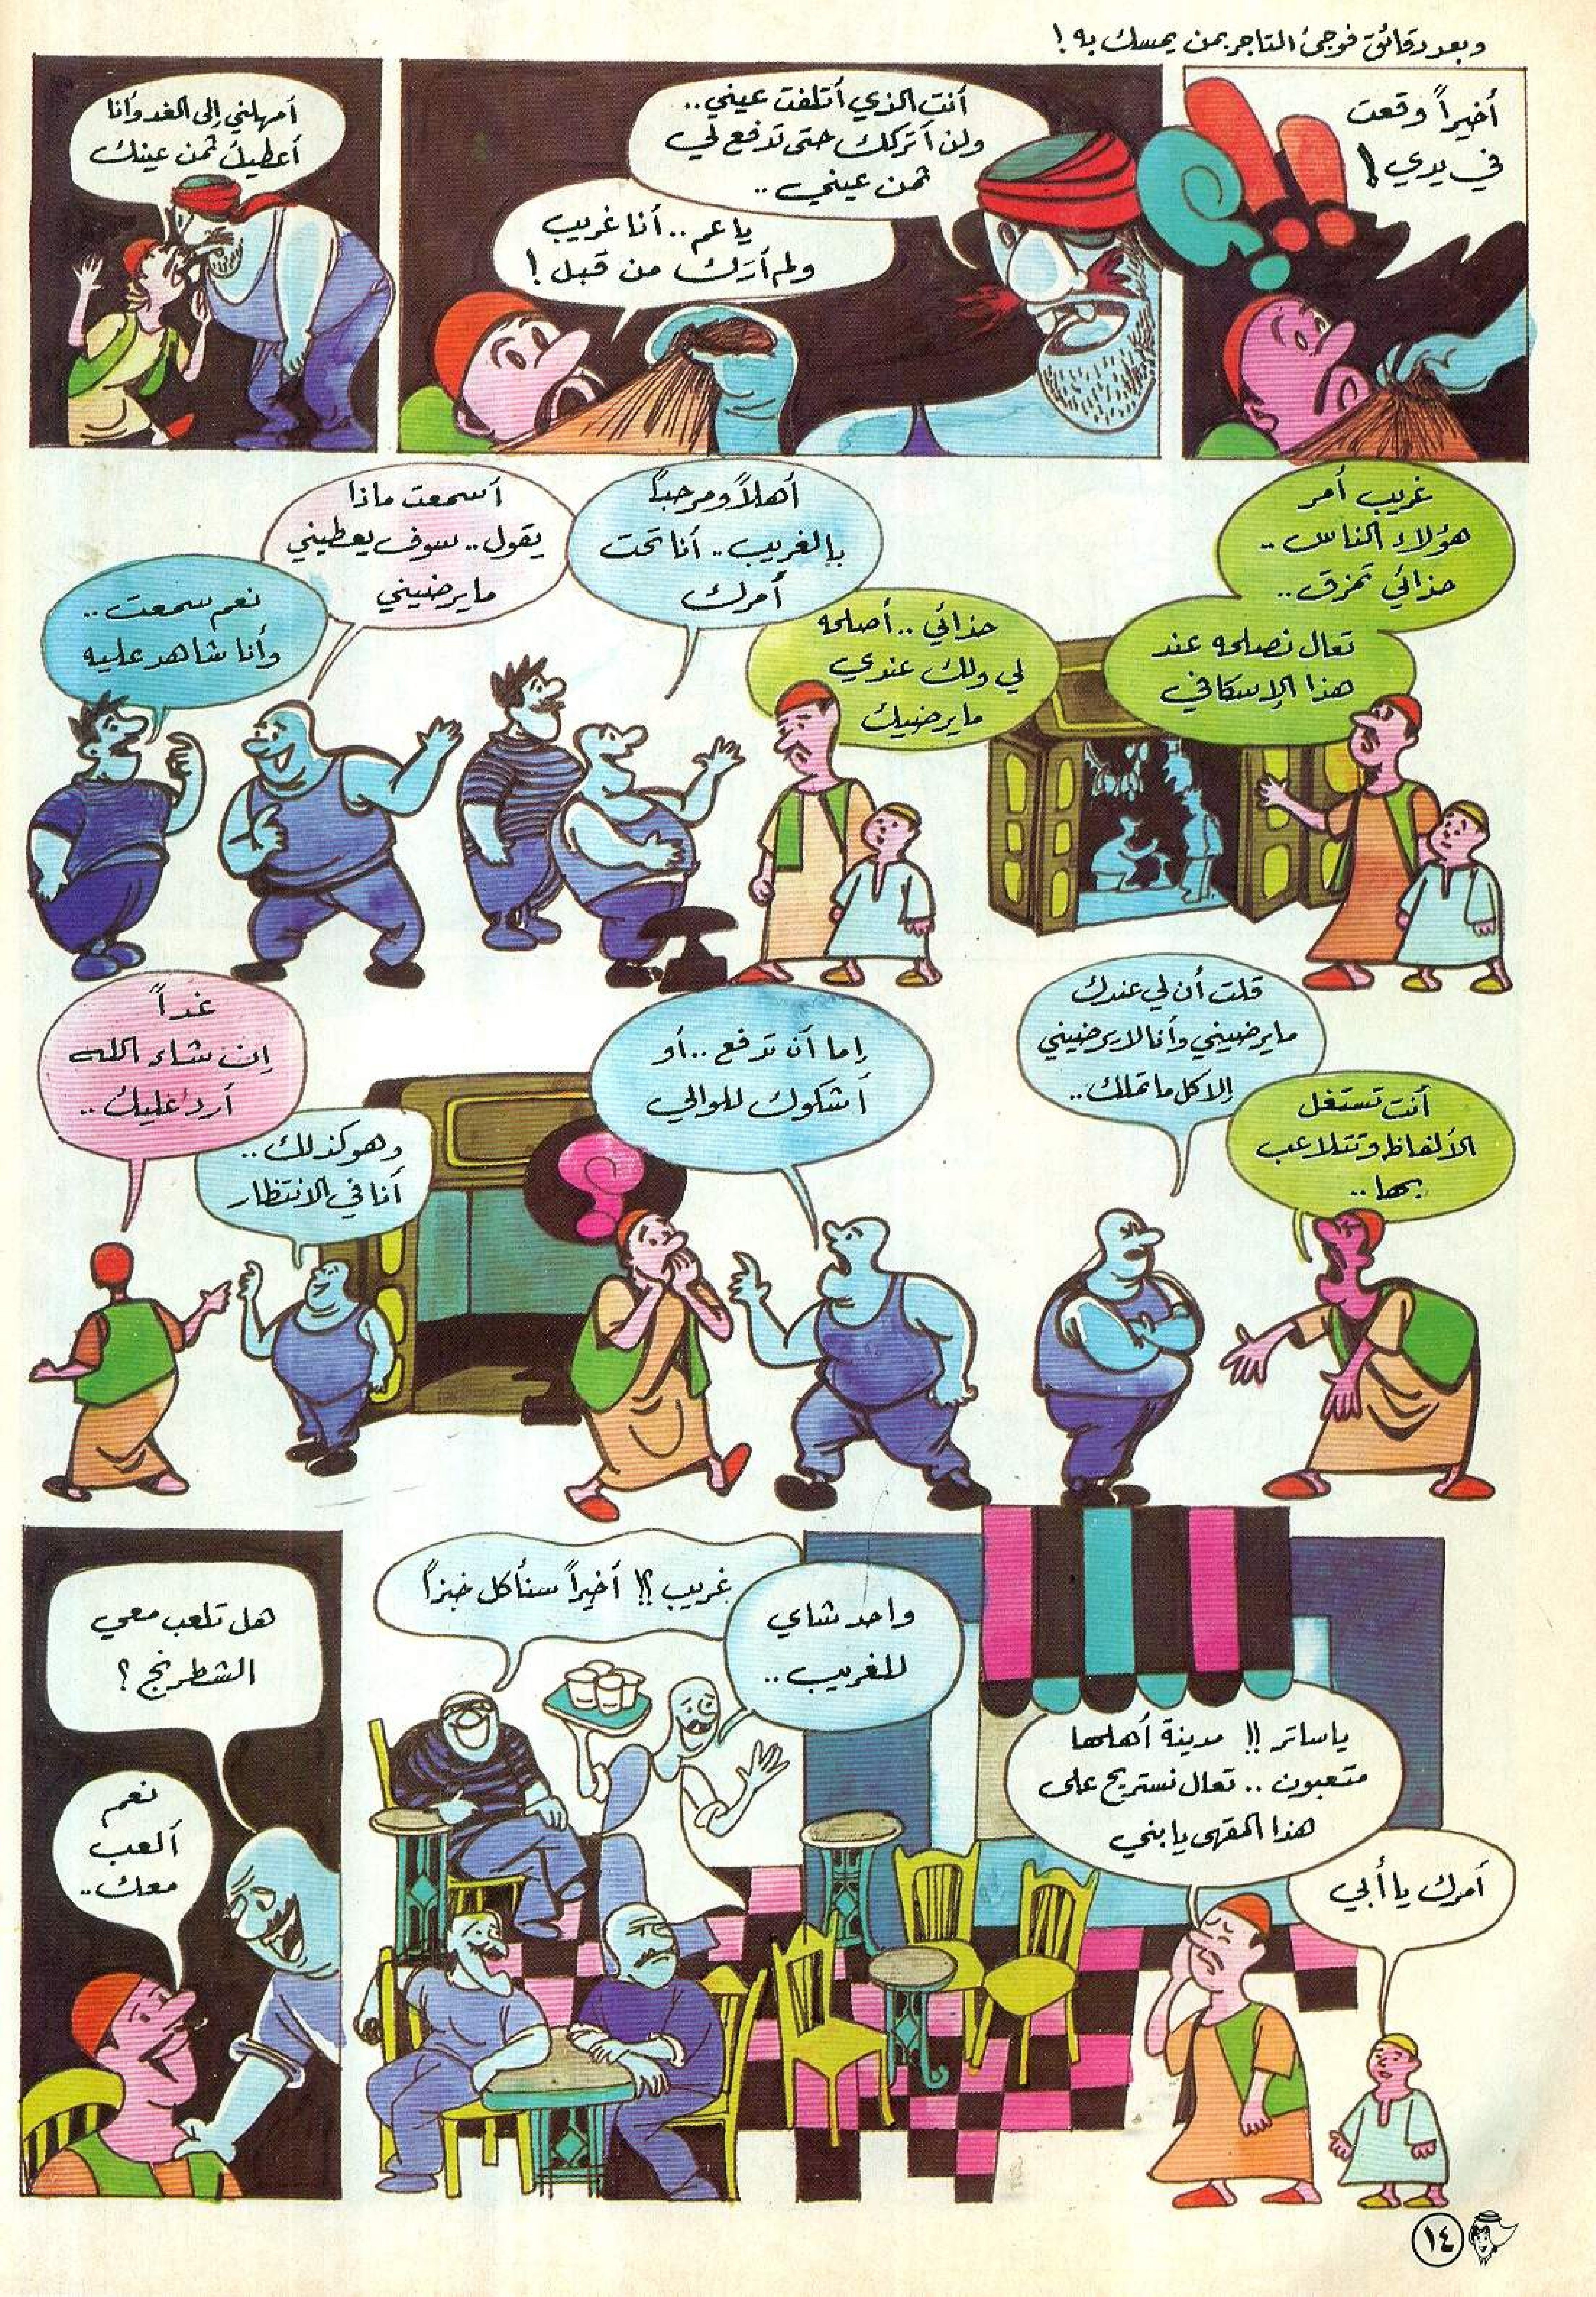 وبعد دقائق فوجئ التاجر بمن يمسك به !
أخيراً وقعت
في يدي !
أنت الذي أتلفت عيني ..
ولن أتركك حتى تدفع لي
ثمن عيني ..
يا عم .. أنا غريب
ولم أرك من قبل !
أمهلني إلى الغد وأنا
أعطيك ثمن عينك
غريب أمر
هؤلاء الناس ..
حذائي تمزق ..
تعال نصلحه عند
هذا الإسكافي
حذائي .. أصلحه
لي ولك عندي
ما يرضيك
أهلاً ومرحباً
بالغريب .. أنا تحت
أمرك
أسمعت ماذا
يقول .. سوف يعطيني
ما يرضيني
نعم سمعت ..
وأنا شاهد عليه
قلت أن لي عندك
ما يرضيني وأنا لا يرضيني
إلا كل ما تملك ..
أنت تستغل
الألفاظ وتتلاعب
بها ..
إما أن تدفع .. أو
أشكوك للوالي
غداً
إن شاء الله
أرد عليك ..
وهو كذلك ..
أنا في الانتظار
يا ساتر !! مدينة أهلها
متعبون .. تعال نستريح على
هذا المقهى يا بني
أمرك يا أبي
واحد شاي
للغريب ..
غريب ؟! أخيراً سنأكل خبزاً
هل تلعب معي
الشطرنج ؟
نعم
ألعب
معك ..
١٤